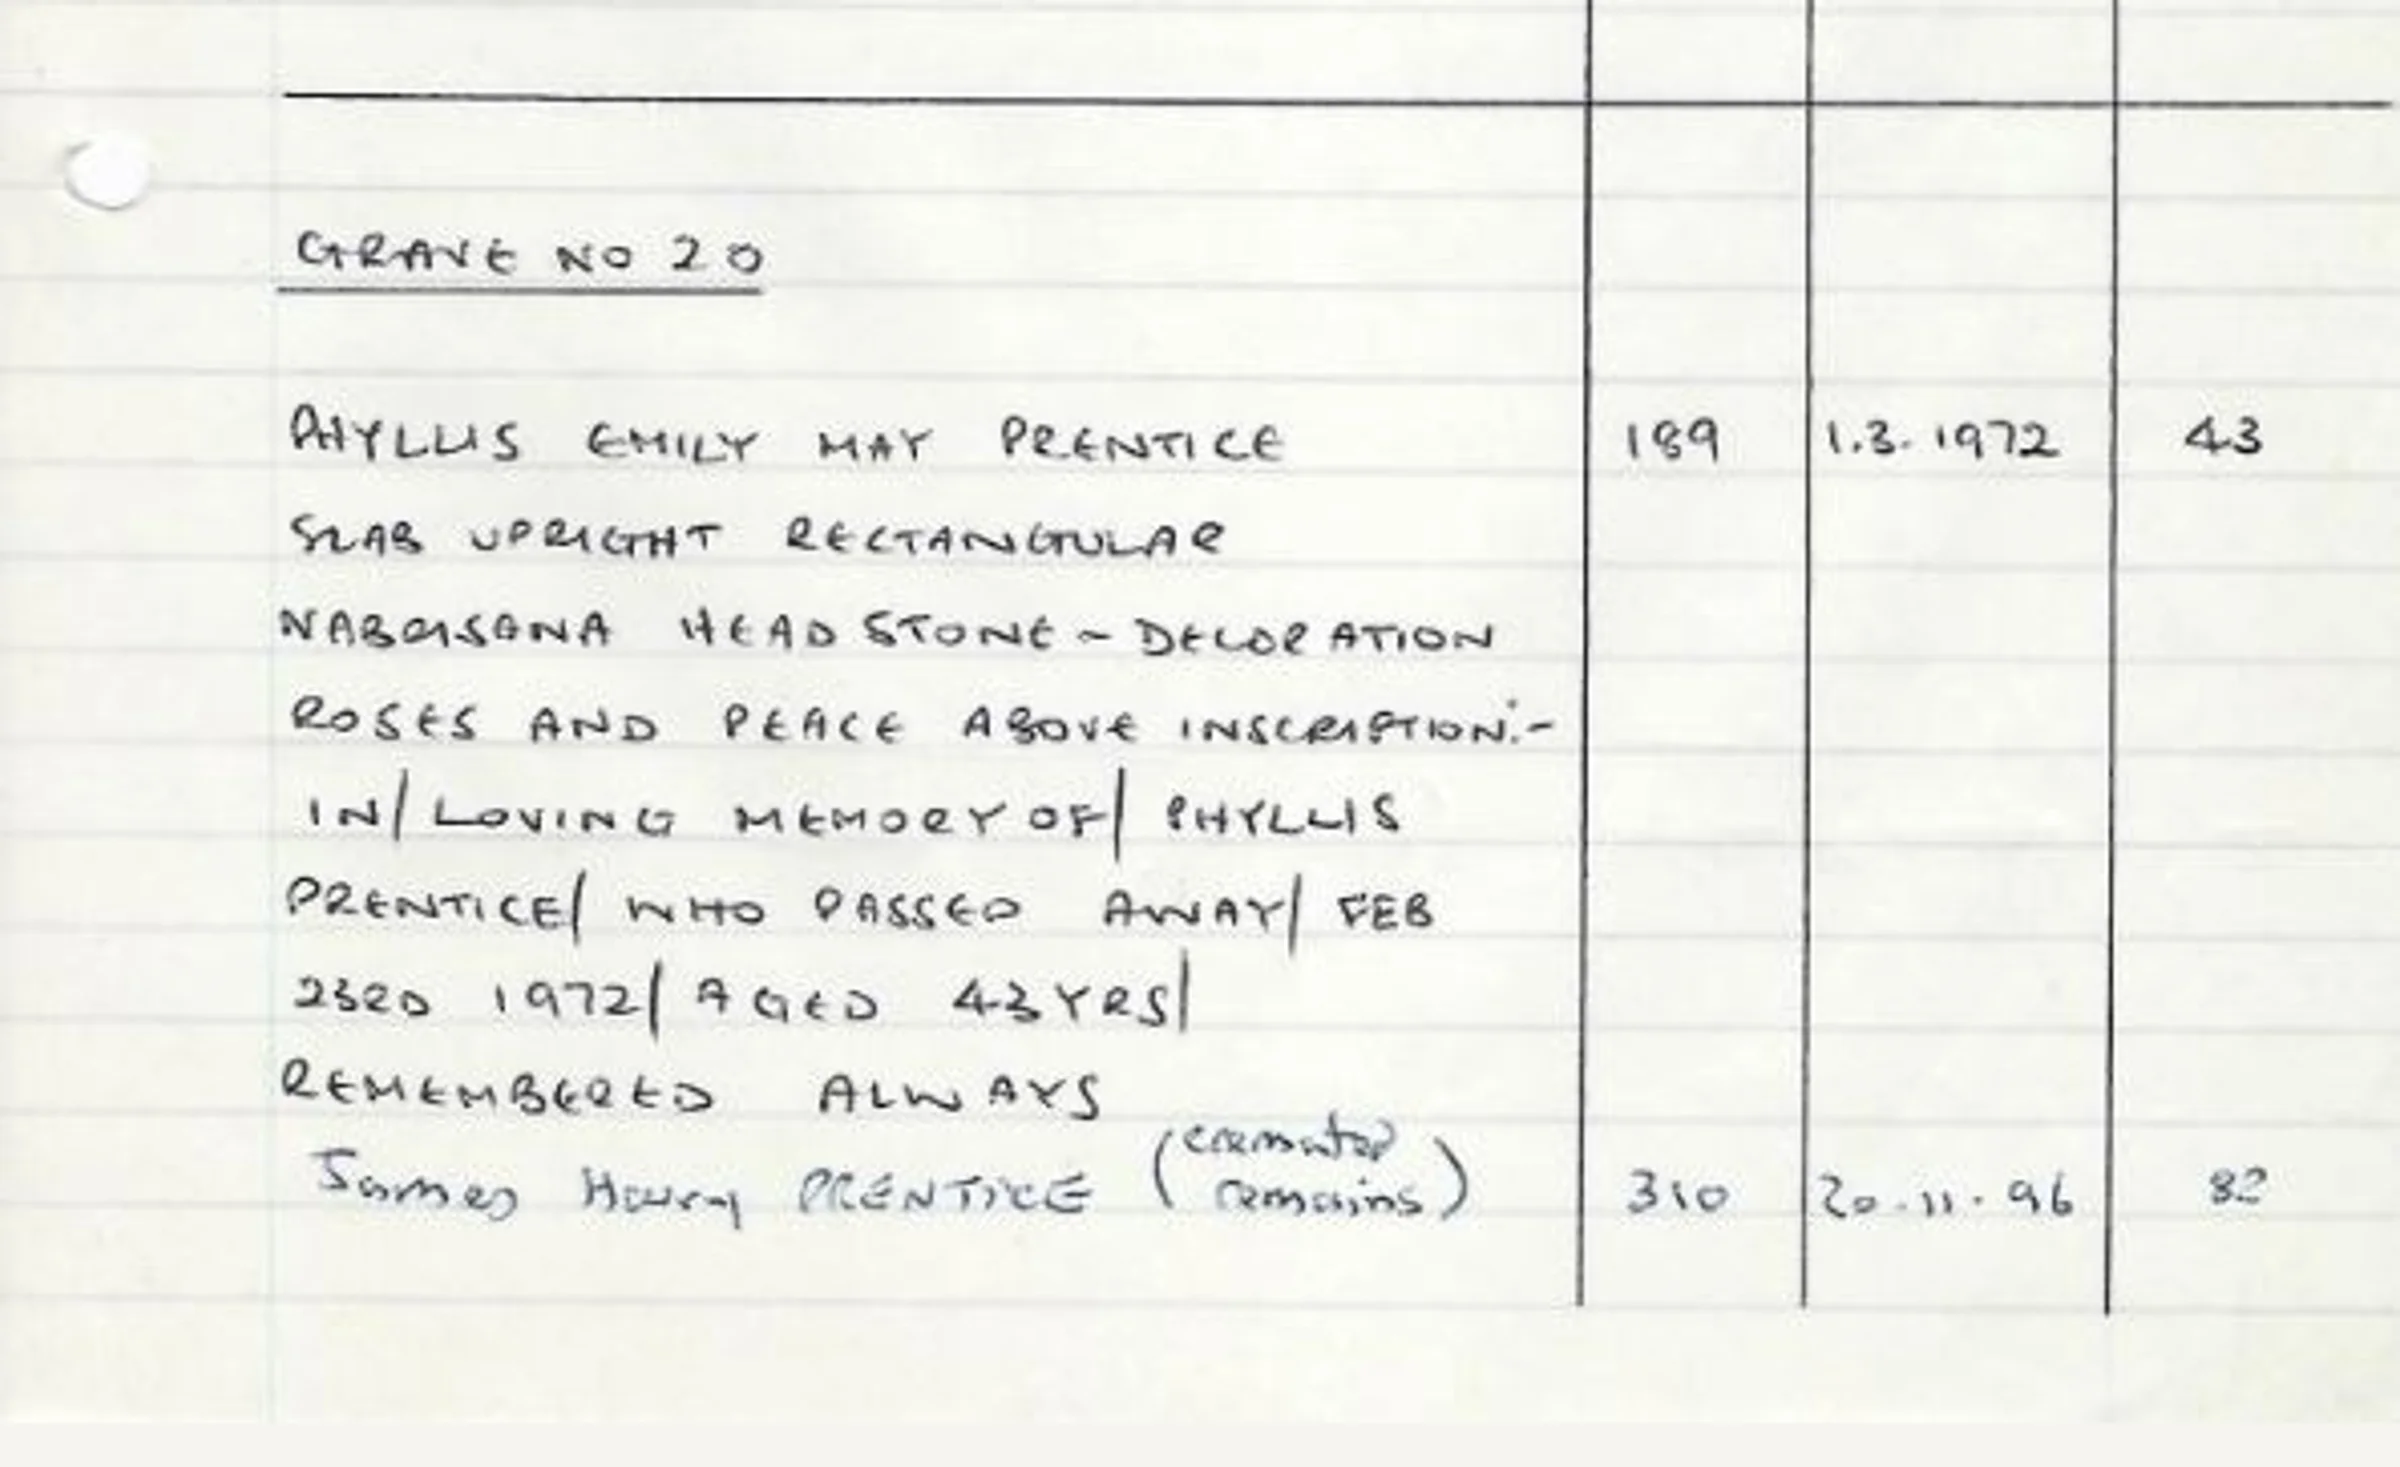 GRAVE NO 20
PHYLLIS EMILY MAY PRENTICE 189 1.3.1972 43
SLAB UPRIGHT RECTANGULAR
NABRISANA HEAD STONE - DECORATION
ROSES AND PEACE ABOVE INSCRIPTION:-
IN/ LOVING MEMORY OF/ PHYLLIS
PRENTICE/ WHO PASSED AWAY/ FEB
23RD 1972/ AGED 43 YRS/
REMEMBERED ALWAYS
James Henry PRENTICE (cremated remains) 310 20.11.96 82